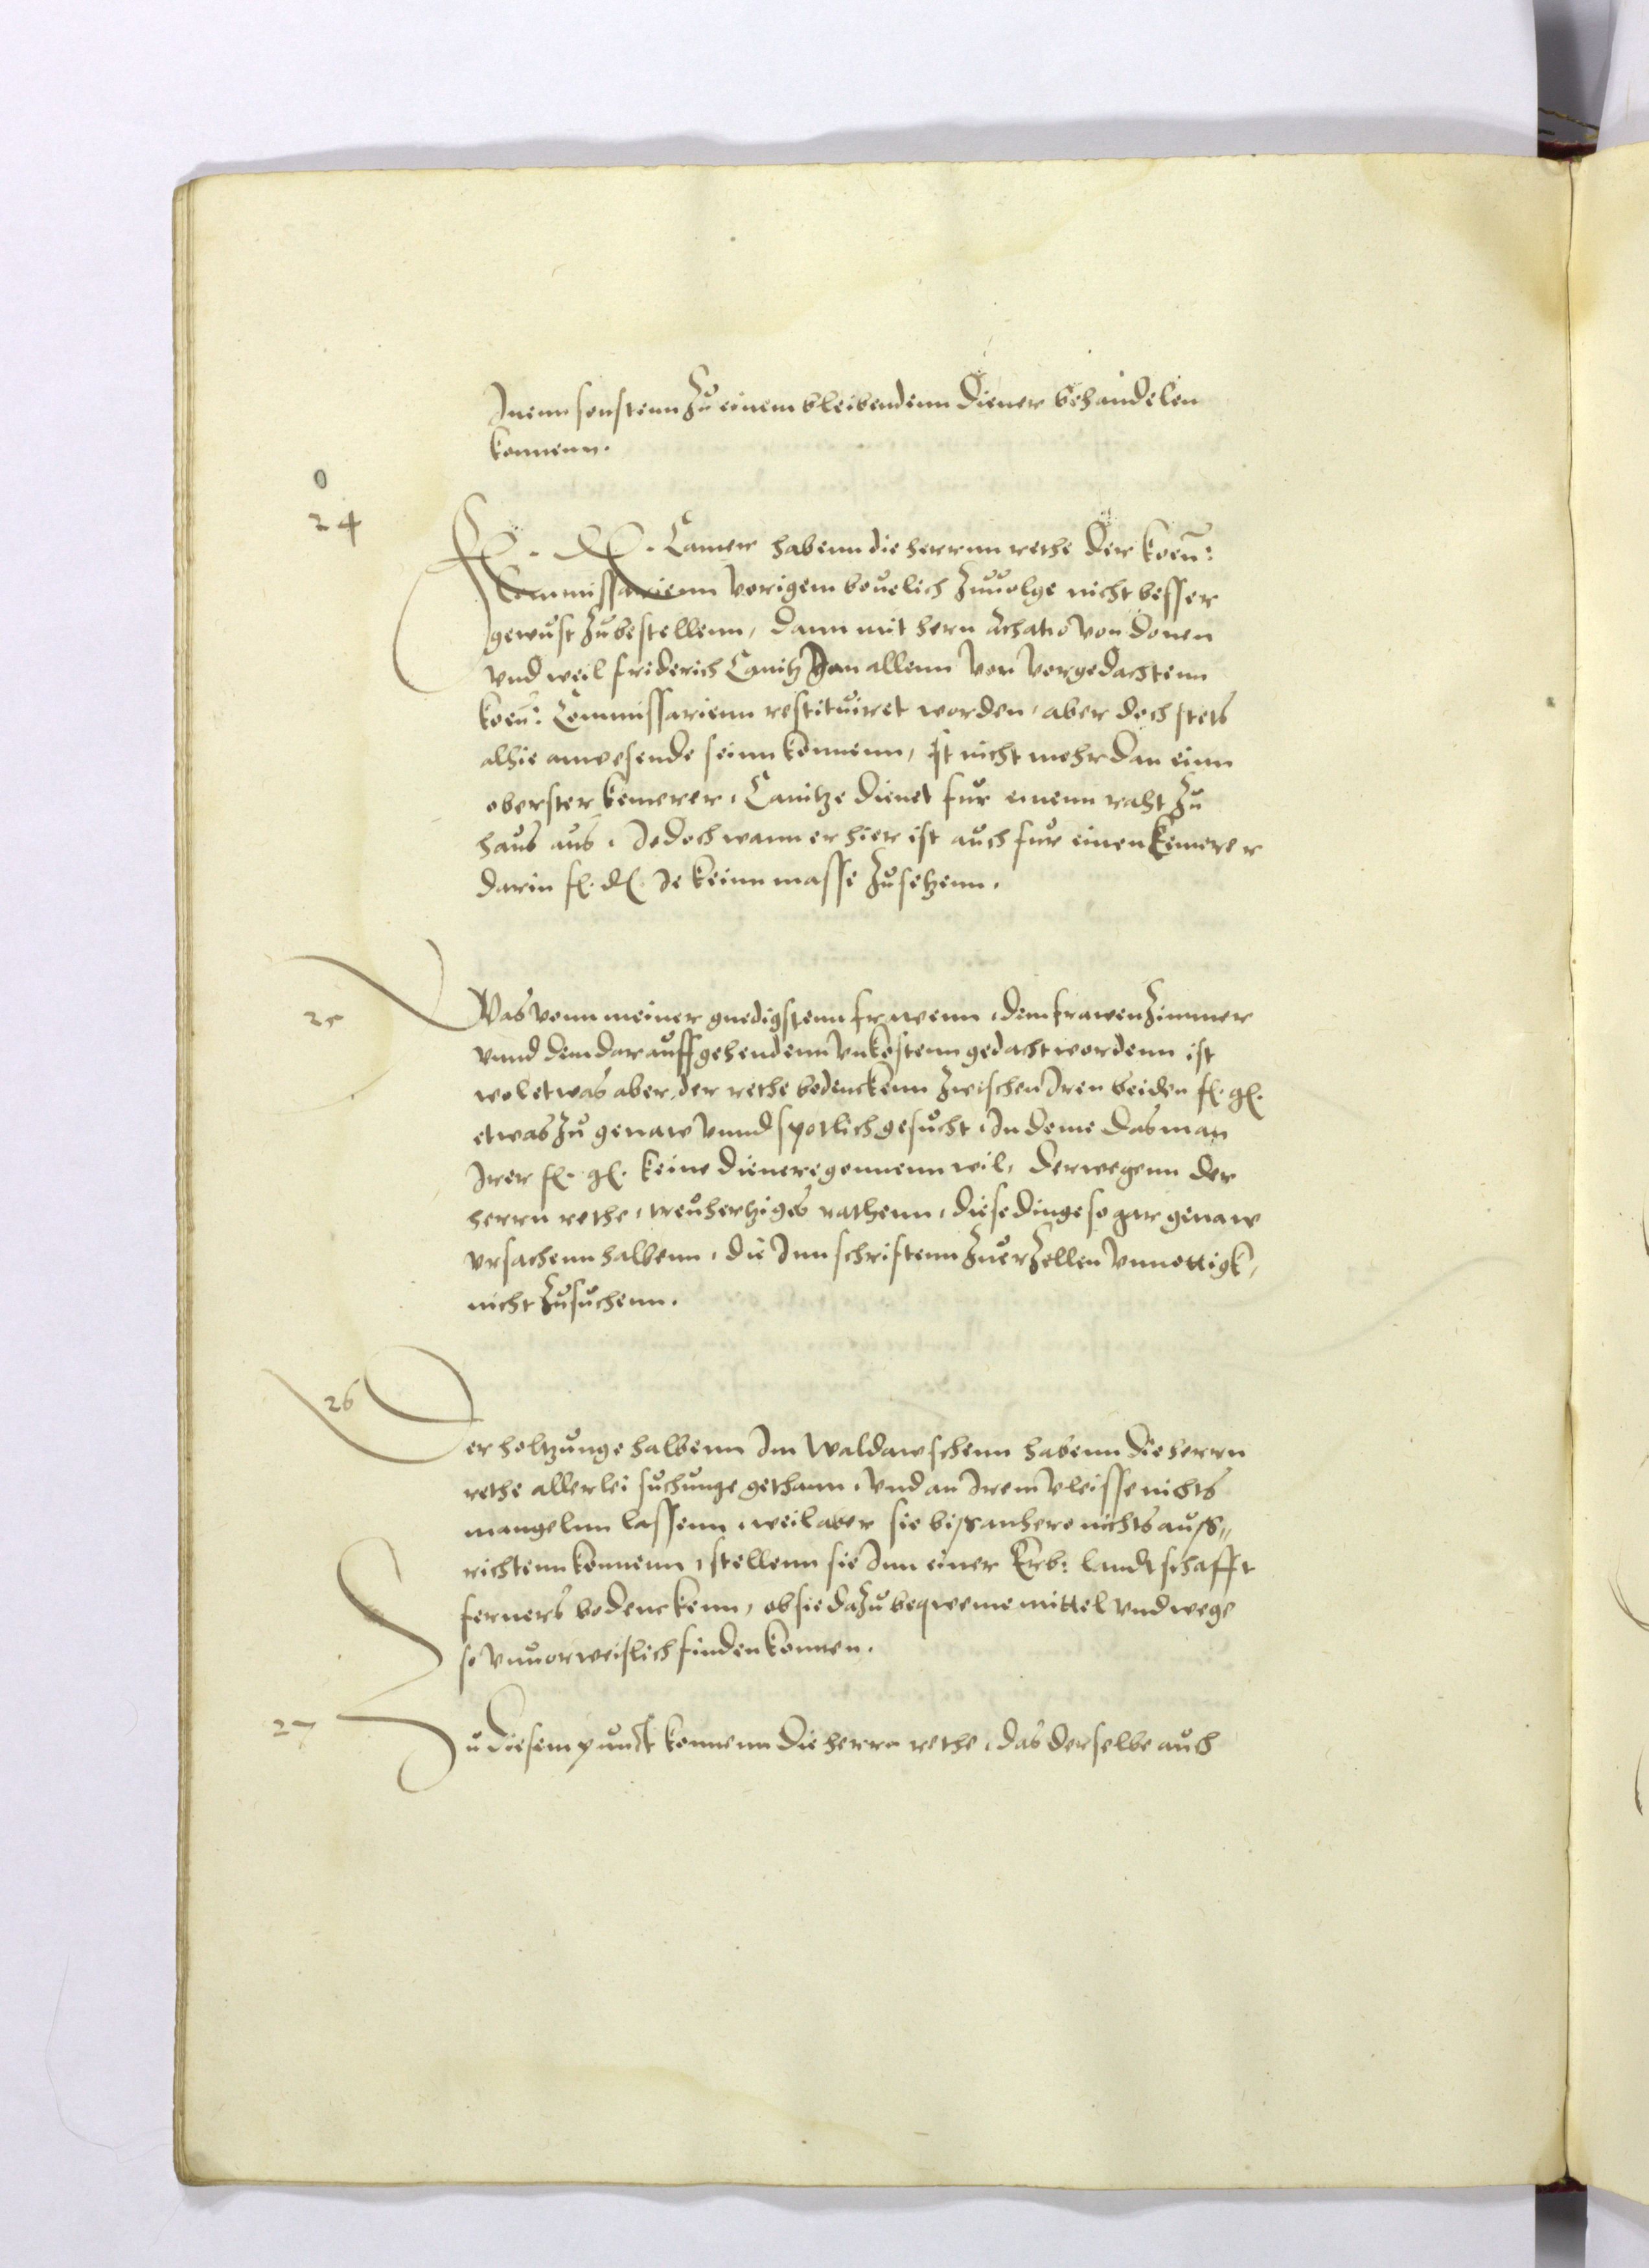 Inenn sonstenn zu einem bleibendenn Diener behandelen
konnenn.
0
24
F. D. Camer habenn die herrnn rethe Der koen:
Commissarienn vorigem beuelich zuuolge nicht besser
gewust zubestellenn, dann mit hern Achatio von donen
vnd weil friderich Canitz von allenn von vorgedachtenn
koen: Commissarienn restituiret worden, aber doch stets
alhie anwesende seinn konnenn, ist nicht mehr dan einn
oberster kemerer, Canitze dienet fur einenn raht zu
haus aus, Jedoch wann er hier ist auch fur einen kemerer
darin f. d. Je keinn masse zusetzenn.
25
Was vonn meiner gnedigstenn frawenn, dem frawenzimmer
vnnd dem darauff gehendenn vnkostenn gedacht wordenn ist
wol etwas aber, der rethe bedenckenn zwischen Iren beiden f. g.
etwas zu genaw vnnd spotlich gesucht, In deme das man
Irer f. g. keine dienere gonnenn wil, derwegenn der
herrn rethe, treuhertziges rathenn, diese dinge so gar genaw
vrsachenn halbenn, die Inn schriftenn zuerzellen vnnottigk,
nicht zusuchenn.
26
Der holtzunge halbenn Im Waldawschenn habenn die herrn
rethe allerlei suchunge gethann, vnd an Irem vleisse nichts
mangelnn lassenn, weil aber sie biss anhero nichts auss„
richtenn konnenn, stellenn sie Inn einer Erb: landtschafft
ferners bedenckenn, ob sie dazu beqweme mittel vnd wege
so vnuorweislich finden konnen.
27
Zu diesem punct konnenn die herrn rethe, das derselbe auch